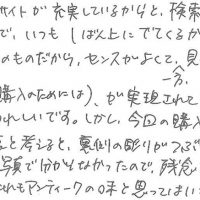 サイトが充実しているからと、検索
で、いつも しばん上にでてくるか
のものだから、センスがよくて、見
一分、
購入のためには)、が実現されて
うれしいです。しかし、今回の購入
ると考えると、裏側の彫りがつぶ
写真で分からなかったので、残念
れもアンティークの味と思ってはい